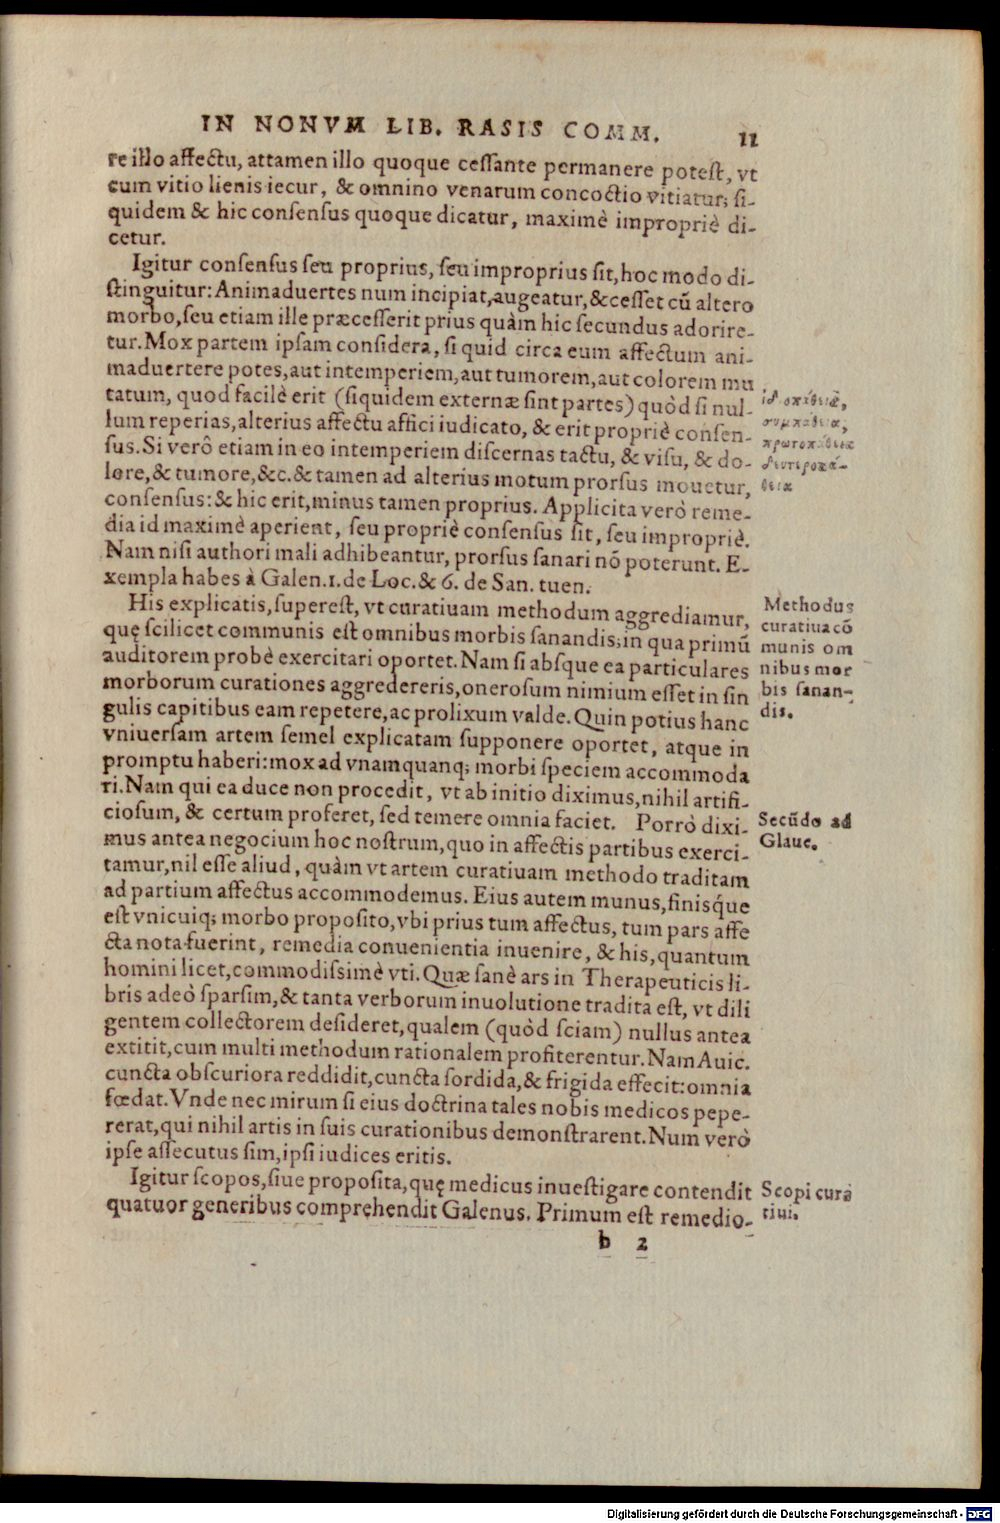 IN NONVM LIB. RASIS COMM. 11
re illo affectu, attamen illo quoque cessante permanere potest, vt
cum vitio lienis iecur, & omnino venarum concoctio vitiatur; si-
quidem & hic consensus quoque dicatur, maximè impropriè di-
cetur.
Igitur consensus seu proprius, seu improprius sit, hoc modo di-
stinguitur: Animaduertes num incipiat, augeatur, & cesset cũ altero
morbo, seu etiam ille præcesserit prius quàm hic secundus adorire-
tur. Mox partem ipsam considera, si quid circa eum affectum ani-
maduertere potes, aut intemperiem, aut tumorem, aut colorem mu
tatum, quod facilè erit (siquidem externæ sint partes) quòd si nul-
lum reperias, alterius affectu affici iudicato, & erit propriè consen-
sus. Si verô etiam in eo intemperiem discernas tactu, & visu, & do-
lore, & tumore, &c. & tamen ad alterius motum prorsus mouetur,
consensus: & hic erit, minus tamen proprius. Applicita verò reme-
dia id maximè aperient, seu propriè consensus sit, seu impropriè.
Nam nisi authori mali adhibeantur, prorsus sanari nõ poterunt. E-
xempla habes à Galen. 1. de Loc. & 6. de San. tuen.
ἰδιοπάθεια,
συμπάθεια,
πρωτοπάθεια
δευτεροπά-
θεια
His explicatis, superest, vt curatiuam methodum aggrediamur,
quę scilicet communis est omnibus morbis sanandis; in qua primũ
auditorem probè exercitari oportet. Nam si absque ea particulares
morborum curationes aggredereris, onerosum nimium esset in sin
gulis capitibus eam repetere, ac prolixum valde. Quin potius hanc
vniuersam artem semel explicatam supponere oportet, atque in
promptu haberi: mox ad vnamquanq; morbi speciem accommoda
ri. Nam qui ea duce non procedit, vt ab initio diximus, nihil artifi-
ciosum, & certum proferet, sed temere omnia faciet. Porrò dixi-
mus antea negocium hoc nostrum, quo in affectis partibus exerci-
tamur, nil esse aliud, quàm vt artem curatiuam methodo traditam
ad partium affectus accommodemus. Eius autem munus, finisq́ue
est vnicuiq; morbo proposito, vbi prius tum affectus, tum pars affe
cta nota fuerint, remedia conuenientia inuenire, & his, quantum
homini licet, commodissimè vti. Quæ sanè ars in Therapeuticis li-
bris adeò sparsim, & tanta verborum inuolutione tradita est, vt dili
gentem collectorem desideret, qualem (quòd sciam) nullus antea
extitit, cum multi methodum rationalem profiterentur. Nam Auic.
cuncta obscuriora reddidit, cuncta sordida, & frigida effecit: omnia
fœdat. Vnde nec mirum si eius doctrina tales nobis medicos pepe-
rerat, qui nihil artis in suis curationibus demonstrarent. Num verò
ipse assecutus sim, ipsi iudices eritis.
Methodus
curatiua cõ
munis om
nibus mor
bis sanan-
dis.
Secũdo ad
Glauc.
Igitur scopos, siue proposita, quę medicus inuestigare contendit
quatuor generibus compręhendit Galenus. Primum est remedio-
Scopi cura
tiui.
b 2
Digitalisierung gefördert durch die Deutsche Forschungsgemeinschaft - DFG